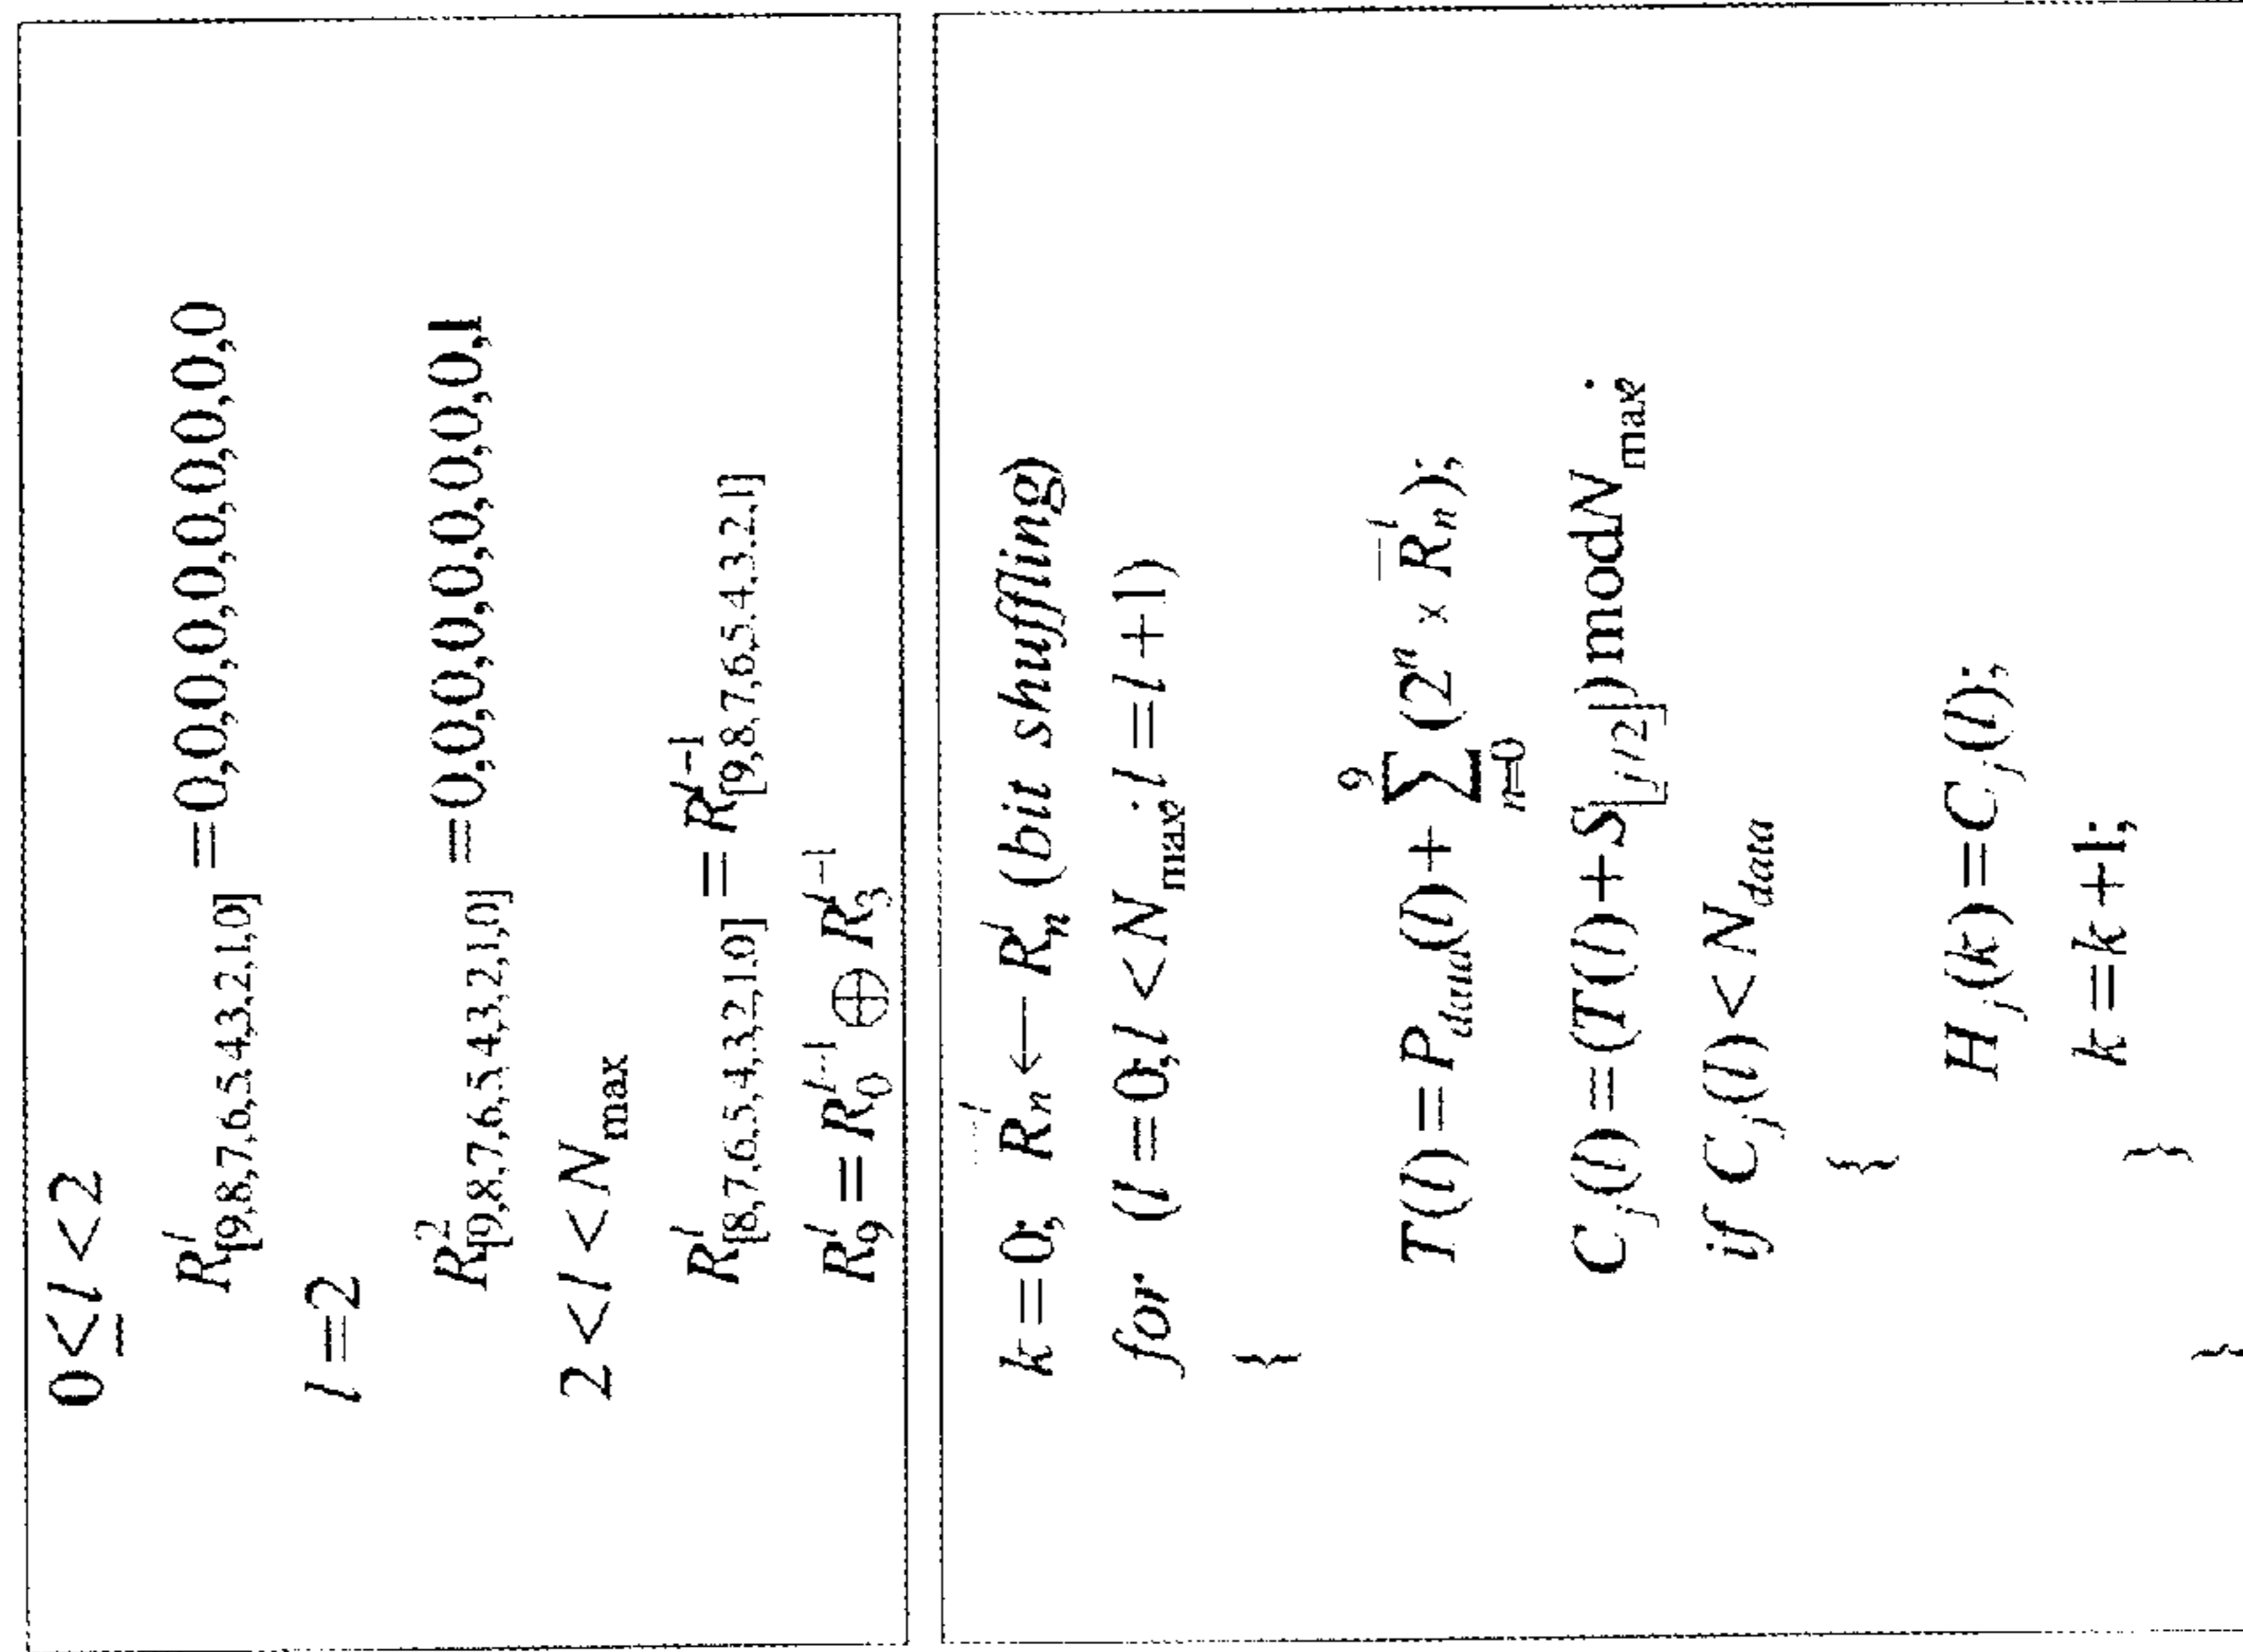 0≤l<2
R^l_[9,8,7,6,5,4,3,2,1,0] =0,0,0,0,0,0,0,0,0,0
l=2
R^2_[9,8,7,6,5,4,3,2,1,0] =0,0,0,0,0,0,0,0,0,1
2<l<N_max
R^l_[8,7,6,5,4,3,2,1,0] =R^{l-1}_[9,8,7,6,5,4,3,2,1]
R^l_9 =R^{l-1}_0 ⊕ R^{l-1}_3
k=0; R̅^l_n ← R^l_n (bit shuffling)
for (l=0;l<N_max;l=l+1)
{
T(l)=P_data(l)+ ∑_{n=0}^{9} (2^n × R̅^l_n);
C_j(l)=(T(l)+S_⌊j/2⌋)modN_max;
if C_j(l)<N_data
{
H_j(k)=C_j(l);
k=k+1;
}
}